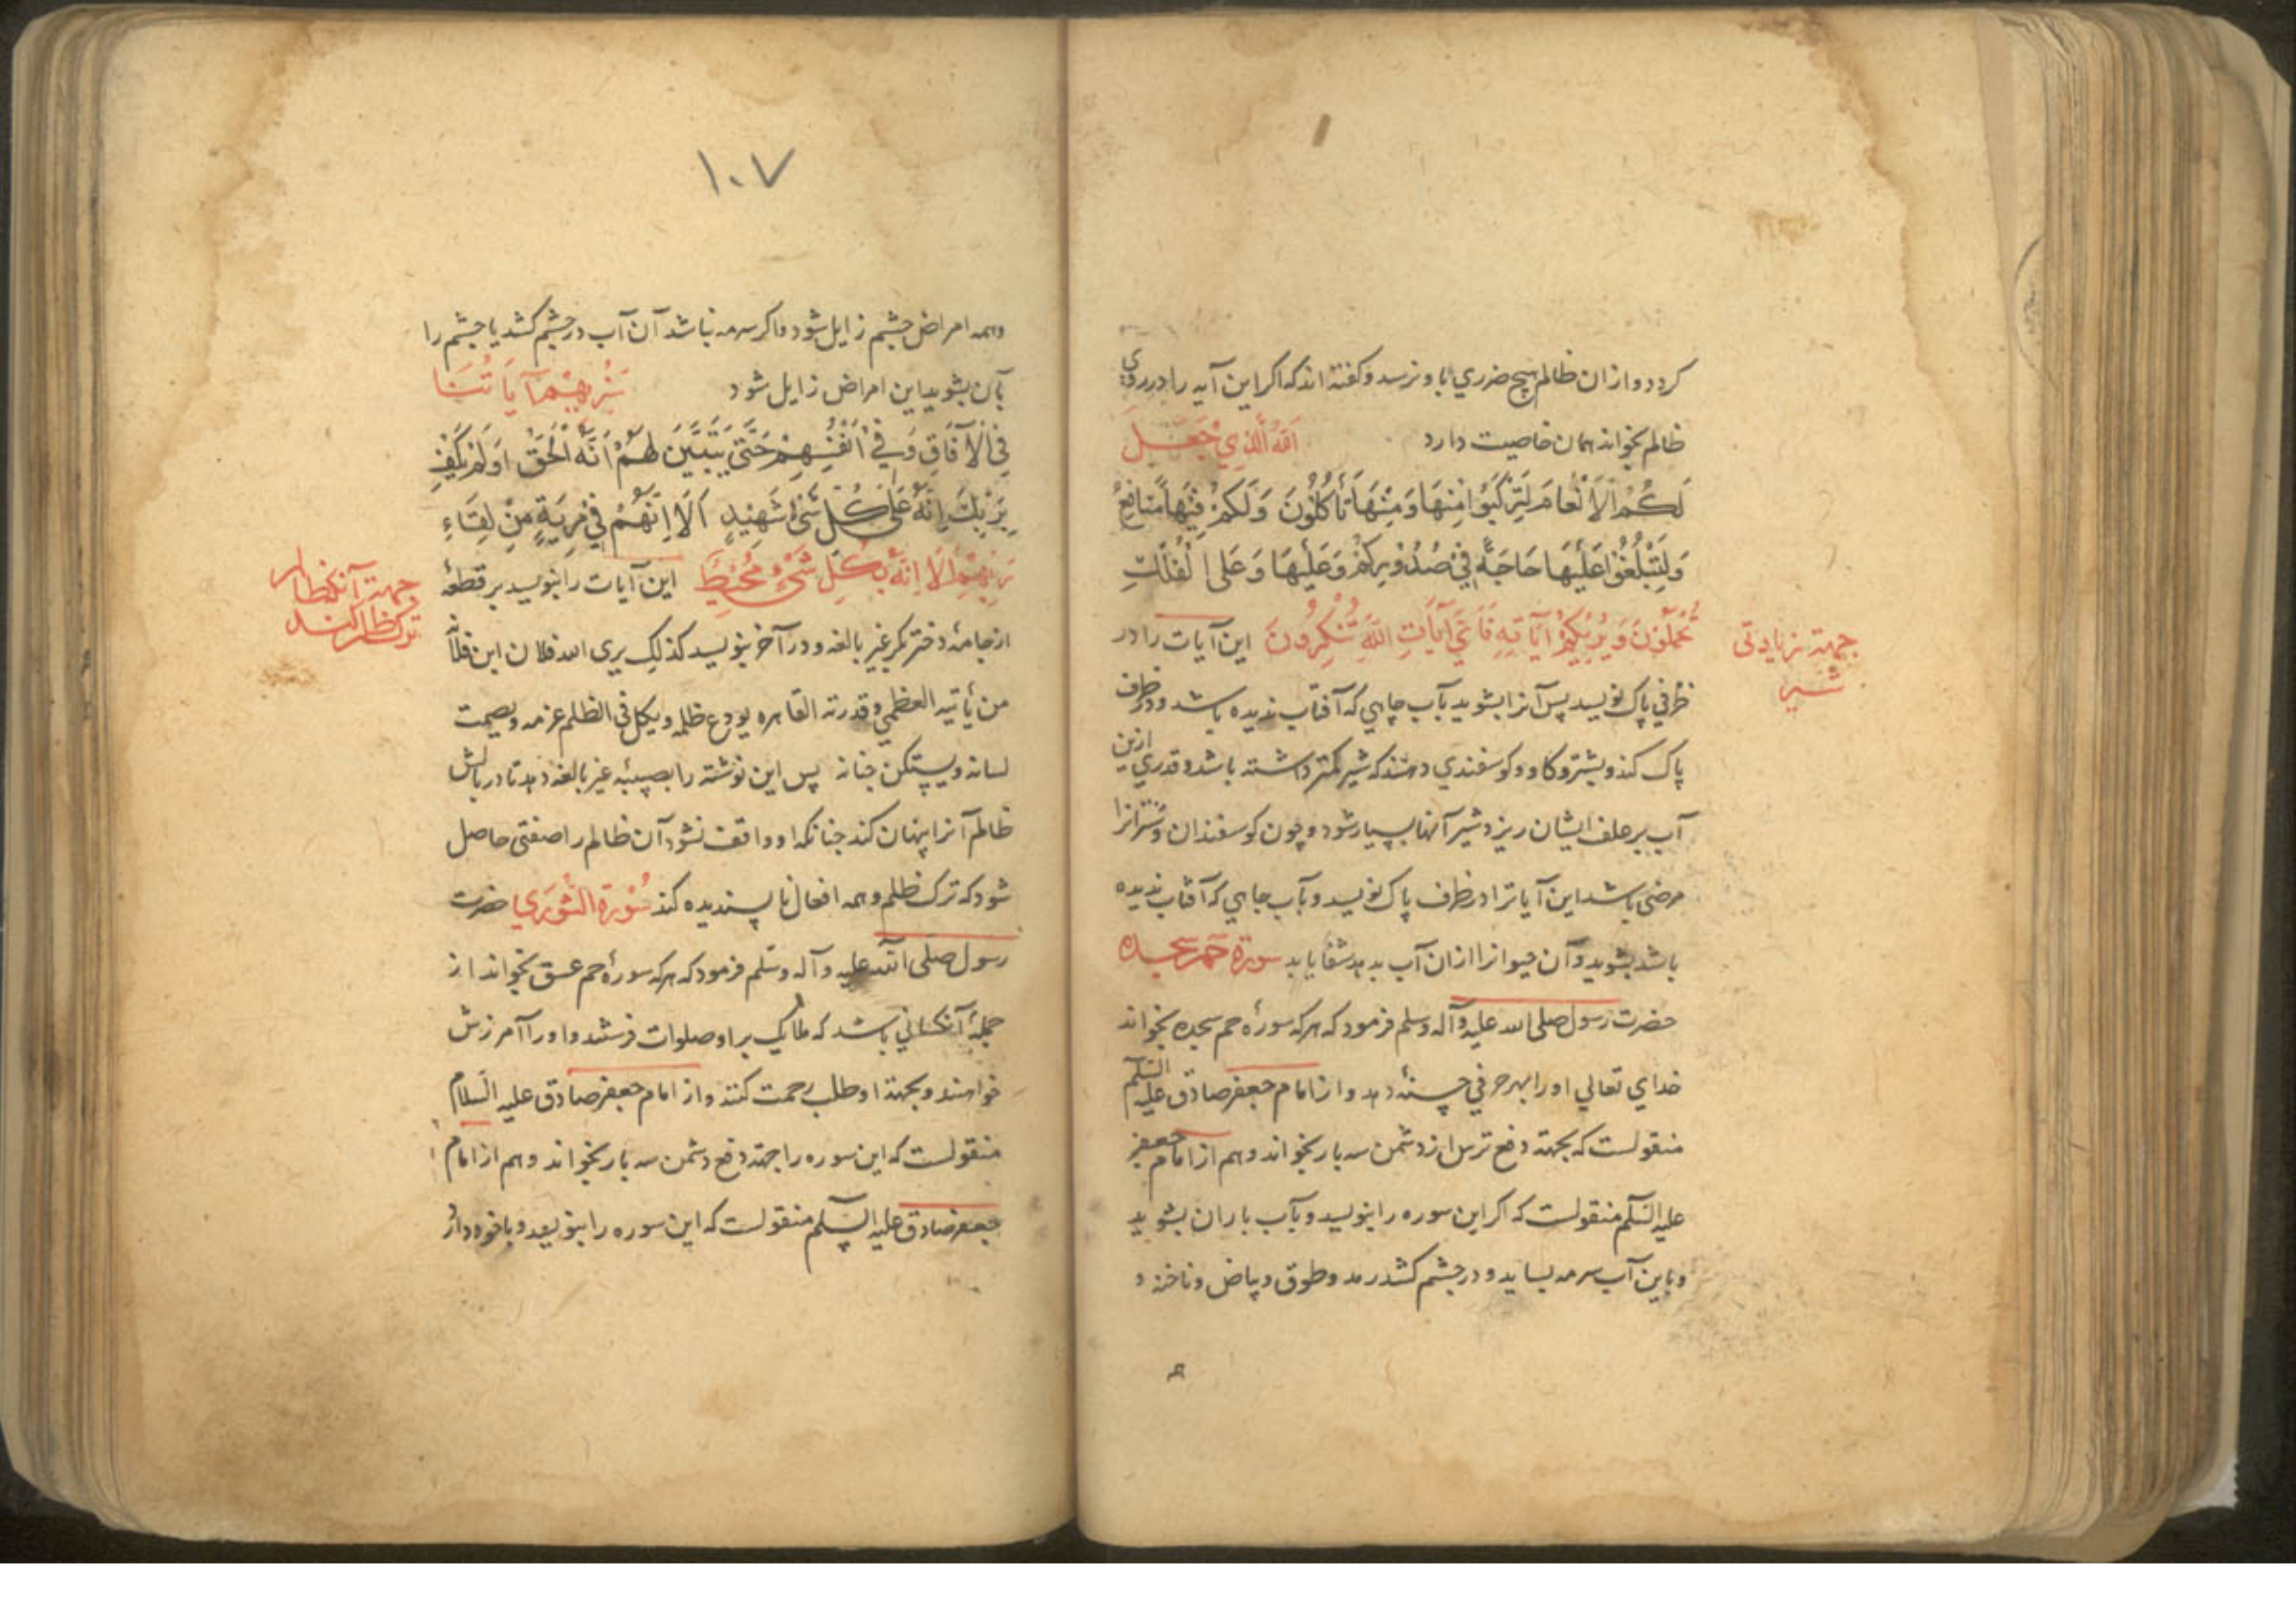 كردد و از ان ظالم هيچ ضرري باو نرسد و كفته اند كه اكر اين آيه را در روي
ظالم بخواند همان خاصيت دارد اَللهُ الَّذِي جَعَلَ
لَكُمُ الْاَنْعَامَ لِتَرْكَبُوا مِنْهَا وَمِنْهَا تَأْكُلُونَ وَلَكُمْ فِيهَا مَنَافِعُ
وَلِتَبْلُغُوا عَلَيْهَا حَاجَةً فِي صُدُورِكُمْ وَعَلَيْهَا وَعَلَى الْفُلْكِ
تُحْمَلُونَ وَيُرِيكُمْ آيَاتِهِ فَاَيَّ آيَاتِ اللهِ تُنْكِرُونَ اين آيات را در
جهتة زيادتی
شير
ظرفي پاك نويسد پس آنرا بشويد بآب چاهي كه آفتاب نديده باشد و در ظرف
پاك كند و بشتر و كاو و كوسفندي دهند كه شير كمتر داشته باشد و قدري ازين
آب بر علف ايشان ريزد شير آنها بسيار شود و چون كوسفندان و شترانرا
مرضی باشد اين آياترا در ظرف پاك نويسد و بآب چاهي كه آفتاب نديده
باشد بشويد و آن حيوانرا ازان آب بدهد شفا يابد سورة حم سجده
حضرت رسول صلی الله عليه وآله وسلم فرمود كه هركه سورهٔ حم سجده بخواند
خداي تعالي او را بهر حرفي حسنهٔ دهد و از امام جعفر صادق عليه السلم
منقولست كه بجهتة دفع ترس از دشمن سه بار بخواند و هم از امام جعفر
عليه السلم منقولست كه اكر اين سوره را بنويسد و بآب باران بشويد
و باين آب سرمه بسايد و در چشم كشد رمد و طوق و بياض و ناخنه و
١٠٧
وهمه امراض چشم زايل شود و اكر سرمه نباشد آن آب در چشم كشد يا چشم را
بآن بشويد اين امراض زايل شود سَنُرِيهِمْ آيَاتِنَا
فِي الْآفَاقِ وَفِي اَنْفُسِهِمْ حَتَّى يَتَبَيَّنَ لَهُمْ اَنَّهُ الْحَقُّ اَوَلَمْ يَكْفِ
بِرَبِّكَ اِنَّهُ عَلَى كُلِّ شَيْءٍ شَهِيدٍ اَلَا اِنَّهُمْ فِي مِرْيَةٍ مِنْ لِقَاءِ
رَبِّهِمْ اَلَا اِنَّهُ بِكُلِّ شَيْءٍ مُحِيطٌ اين آيات را بنويسد بر قطعهٔ
جهتة آنكه ظالم
ترك ظلم كند
از جامهٔ دختر بكر غير بالغه و در آخر بنويسد كذلك يرى الله فلان ابن فلانه
من آياته العظمي و قدرته القاهره يودع ظلمه و يكل في الظلم عزمه و يصمت
لسانه و يستكن جنانه پس اين نوشته را بصبيهٔ غير بالغه دهد تا در بالش
ظالم آنرا پنهان كند چنانكه او واقف نشود آن ظالم را صفتی حاصل
شود كه ترك ظلم و همه افعال ناپسنديده كند سُورَة الشُّورَي حضرت
رسول صلی الله عليه وآله وسلم فرمود كه هركه سورهٔ حم عسق بخواند از
جملهٔ آنكساني باشد كه ملايك بر او صلوات فرستند و اورا آمرزش
خواهند و بجهتة او طلب رحمت كنند و از امام جعفر صادق عليه السلام
منقولست كه اين سوره را جهتة دفع دشمن سه بار بخواند و هم از امام
جعفر صادق عليه السلم منقولست كه اين سوره را بنويسد و با خود دارد